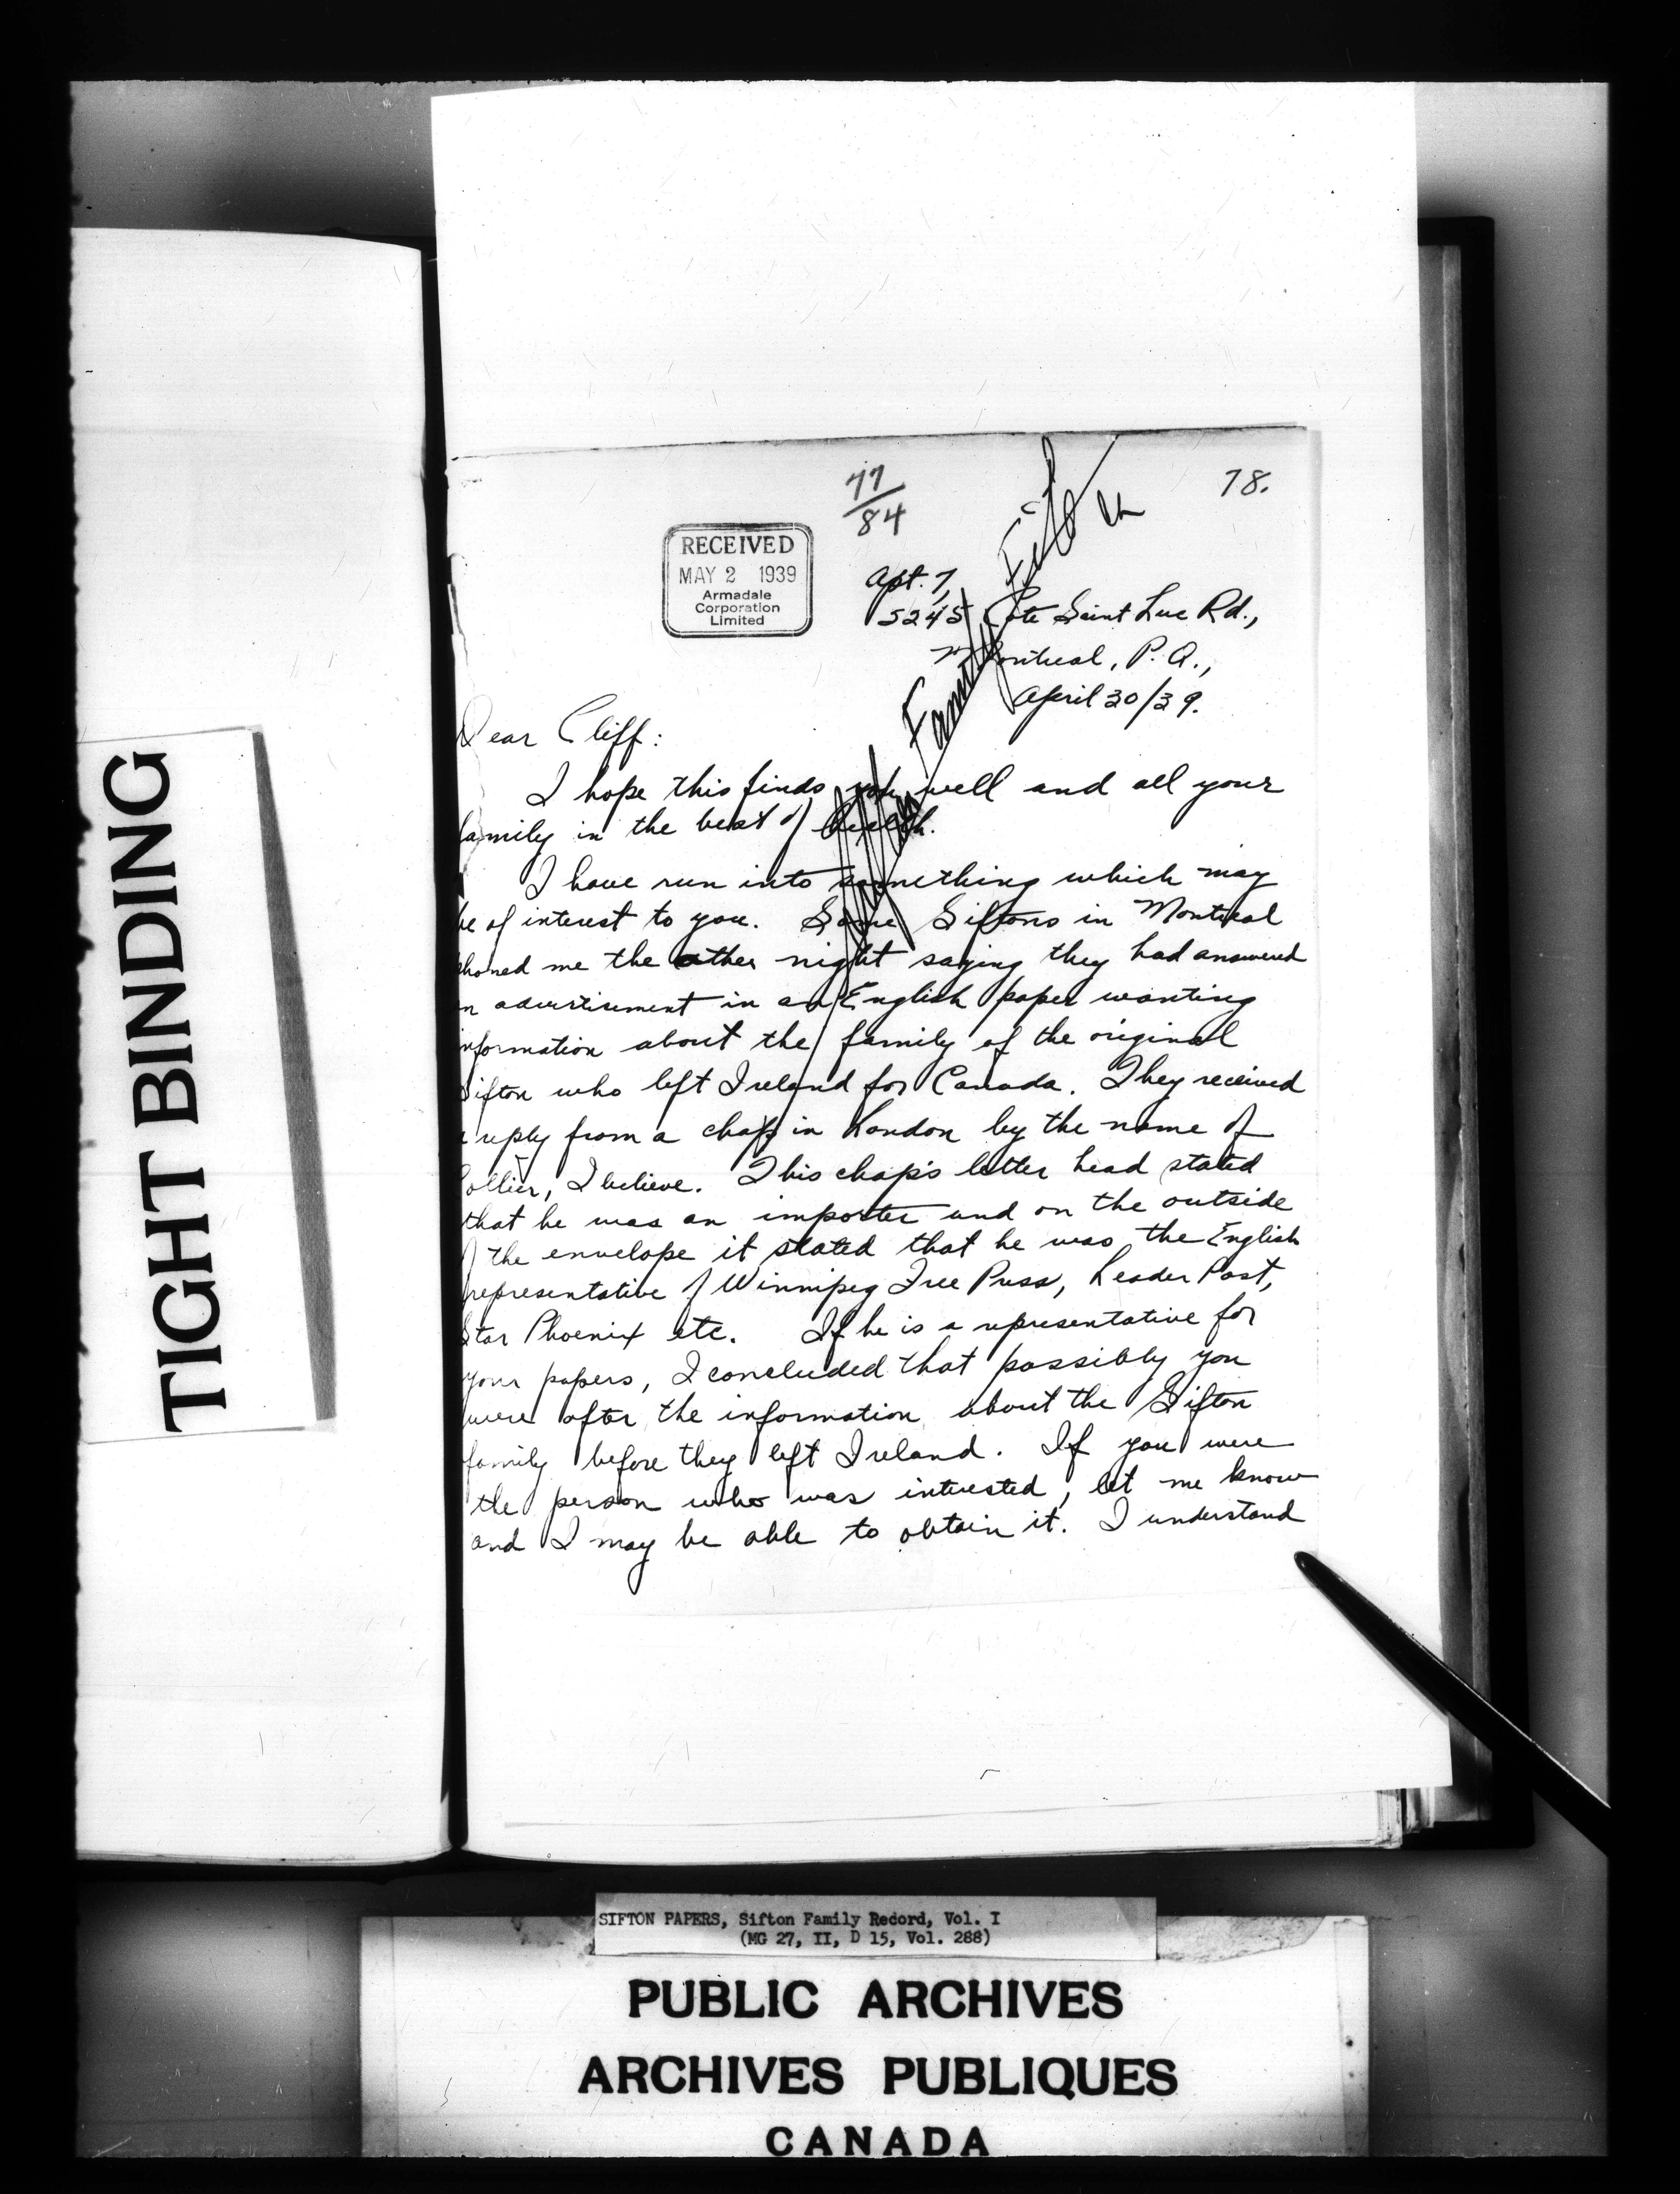 TIGHT BINDING
77
84
78.
RECEIVED
MAY 2 1939
Armadale
Corporation
Limited
Apt. 7,
5245 Cote Saint Luc Rd.,
Montreal, P.Q.,
April 30/39.
Family
Dear Cliff:
I hope this finds you well and all your
family in the best of health.
I have run into something which may
be of interest to you. Some Siftons in Montreal
phoned me the other night saying they had answered
an advertisement in an English paper wanting
information about the family of the original
Sifton who left Ireland for Canada. They received
a reply from a chap in London by the name of
Collier, I believe. This chap's letter head stated
that he was an importer and on the outside
of the envelope it stated that he was the English
representative of Winnipeg Free Press, Leader Post,
Star Phoenix etc. If he is a representative for
your papers, I concluded that possibly you
were after the information about the Sifton
family before they left Ireland. If you were
the person who was interested, let me know
and I may be able to obtain it. I understand
SIFTON PAPERS, Sifton Family Record, Vol. I
(MG 27, II, D 15, Vol. 288)
PUBLIC ARCHIVES
ARCHIVES PUBLIQUES
CANADA